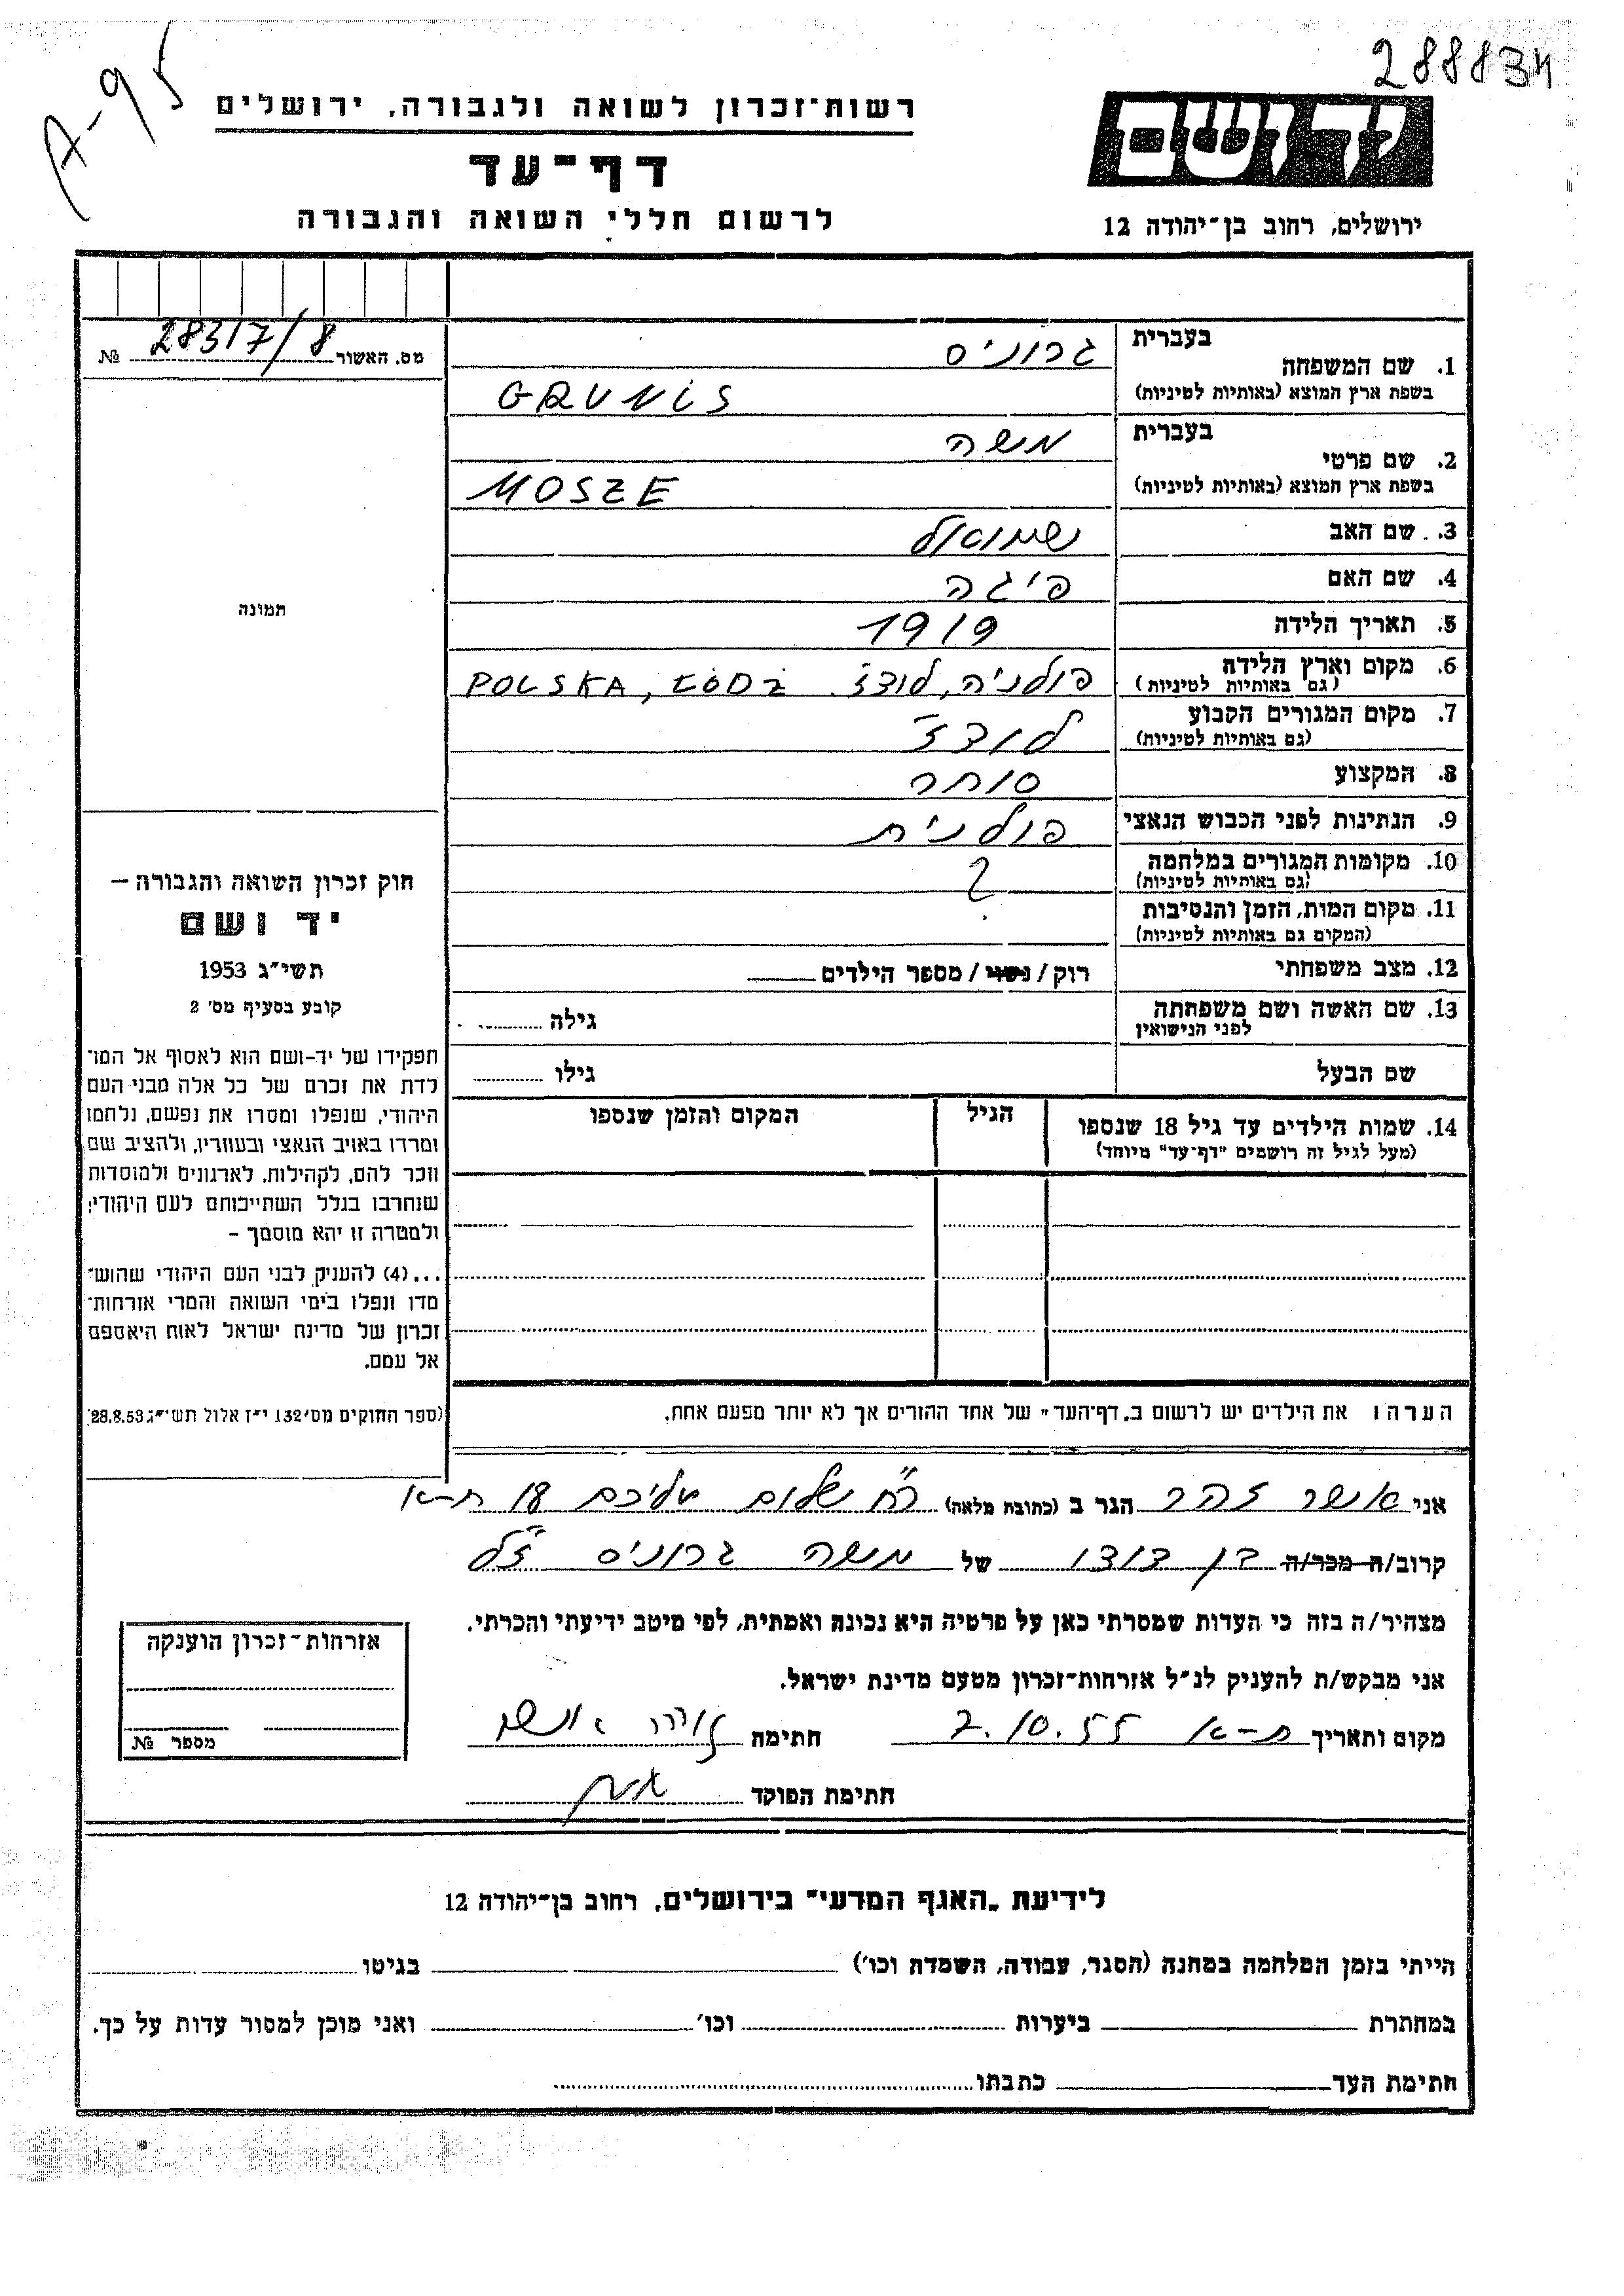 288834
A-95
ידושם
ירושלים, רחוב בן־יהודה 12
רשות־זכרון לשואה ולגבורה, ירושלים
דף־עד
לרשום חללי השואה והגבורה
מס. האשור 28317/8 №
תמונה
בעברית גרוניס
1. שם המשפחה
בשפת ארץ המוצא (באותיות לטיניות) GRUNIS
בעברית משה
2. שם פרטי
בשפת ארץ המוצא (באותיות לטיניות) MOSZE
3. שם האב שמואל
4. שם האם פיגה
5. תאריך הלידה 1919
6. מקום וארץ הלידה פולניה, לודז' POLSKA, ŁÓDŹ
(גם באותיות לטיניות)
7. מקום המגורים הקבוע לודז'
(גם באותיות לטיניות)
8. המקצוע סוחר
9. הנתינות לפני הכבוש הנאצי פולנית
10. מקומות המגורים במלחמה ?
(גם באותיות לטיניות)
11. מקום המות, הזמן והנסיבות
(המקום גם באותיות לטיניות)
12. מצב משפחתי רוק / נשוי / מספר הילדים
13. שם האשה ושם משפחתה גילה
לפני הנישואין
שם הבעל גילו
14. שמות הילדים עד גיל 18 שנספו הגיל המקום והזמן שנספו
(מעל לגיל זה רושמים "דף־עד" מיוחד)
הערה: את הילדים יש לרשום ב„דף־העד" של אחד ההורים אך לא יותר מפעם אחת.
חוק זכרון השואה והגבורה —
יד ושם
תשי"ג 1953
קובע בסעיף מס' 2
תפקידו של יד-ושם הוא לאסוף אל המו־
לדת את זכרם של כל אלה מבני העם
היהודי, שנפלו ומסרו את נפשם, נלחמו
ומרדו באויב הנאצי ובעוזריו, ולהציב שם
וזכר להם, לקהילות, לארגונים ולמוסדות
שנחרבו בגלל השתייכותם לעם היהודי;
ולמטרה זו יהא מוסמך -
...(4) להעניק לבני העם היהודי שהוש־
מדו ונפלו בימי השואה והמרי אזרחות־
זכרון של מדינת ישראל לאות היאספם
אל עמם.
(ספר החוקים מס' 132 י"ז אלול תשי"ג 28.8.53)
אני אשר זהר הגר ב (כתובת מלאה) רח' שלום עליכם 18 ת-א
קרוב/ה מכר/ה בן דודו של משה גרוניס ז"ל
מצהיר/ה בזה כי העדות שמסרתי כאן על פרטיה היא נכונה ואמתית, לפי מיטב ידיעתי והכרתי.
אני מבקש/ת להעניק לנ"ל אזרחות־זכרון מטעם מדינת ישראל.
מקום ותאריך ת-א 2.10.55 חתימה זהר אשר
חתימת הפוקד
אזרחות־זכרון הוענקה
מספר №
לידיעת „האגף המדעי" בירושלים, רחוב בן־יהודה 12
הייתי בזמן המלחמה במחנה (הסגר, עבודה, השמדה וכו') בגיטו
במחתרת ביערות וכו' ואני מוכן למסור עדות על כך.
חתימת העד כתבתו